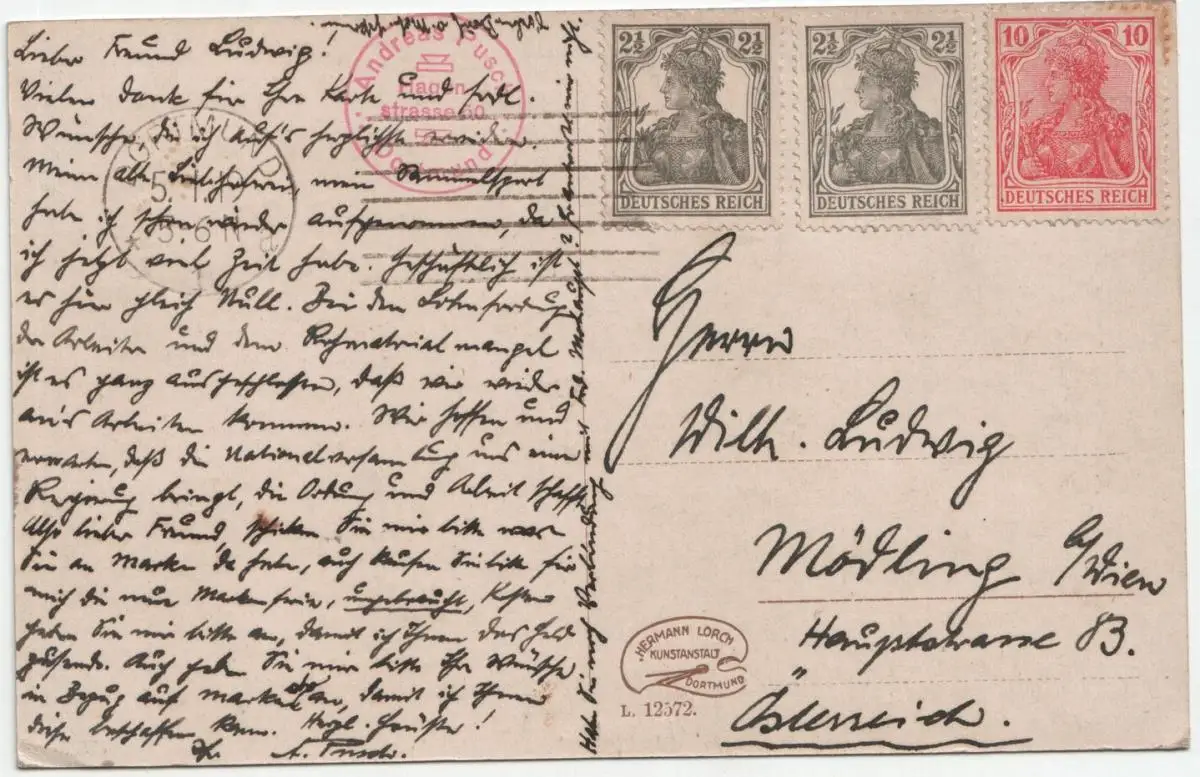 Lieber Freund Ludwig!
Vielen Dank für Ihre Karte und frdl.
Wünsche, die ich auf's herzlichste erwidre.
Meine alte Liebhaberei, mein Sammelsport
habe ich schon wieder aufgenommen, da
ich jetzt viel Zeit habe. Geschäftlich ist
es hier gleich Null. Bei den Lohnforderung
der Arbeiter und dem Rohmaterialmangel
ist es ganz ausgeschlossen, daß wir wieder
an's Arbeiten kommen. Wir hoffen und
erwarten, daß die Nationalversamlung uns eine
Regierung bringt, die Ordung und Arbeit schafft.
Also lieber Freund, schicken Sie mir bitte was
Sie an Marken da haben, auch kaufen Sie bitte für
mich die neue Markenserie, ungebraucht, Kosten
geben Sie mir bitte an, damit ich Ihnen das Geld
zusende. Auch geben Sie mir bitte Ihre Wünsche
in Bezug auf Marken an, damit ich Ihnen
diese beschaffen kann. Herzl. Grüsse!
Ihr A. Pusch.
Habe Sie noch Verbindung mit
Andreas Pusch
Hagen
strasse 60
Dortmund
2½ 2½
DEUTSCHES REICH
2½ 2½
DEUTSCHES REICH
10 10
DEUTSCHES REICH
Herrn
Wilh. Ludwig
Mödling b/Wien
Hauptstrasse 83.
Österreich.
HERMANN LORCH
KUNSTANSTALT
DORTMUND
L. 12572.